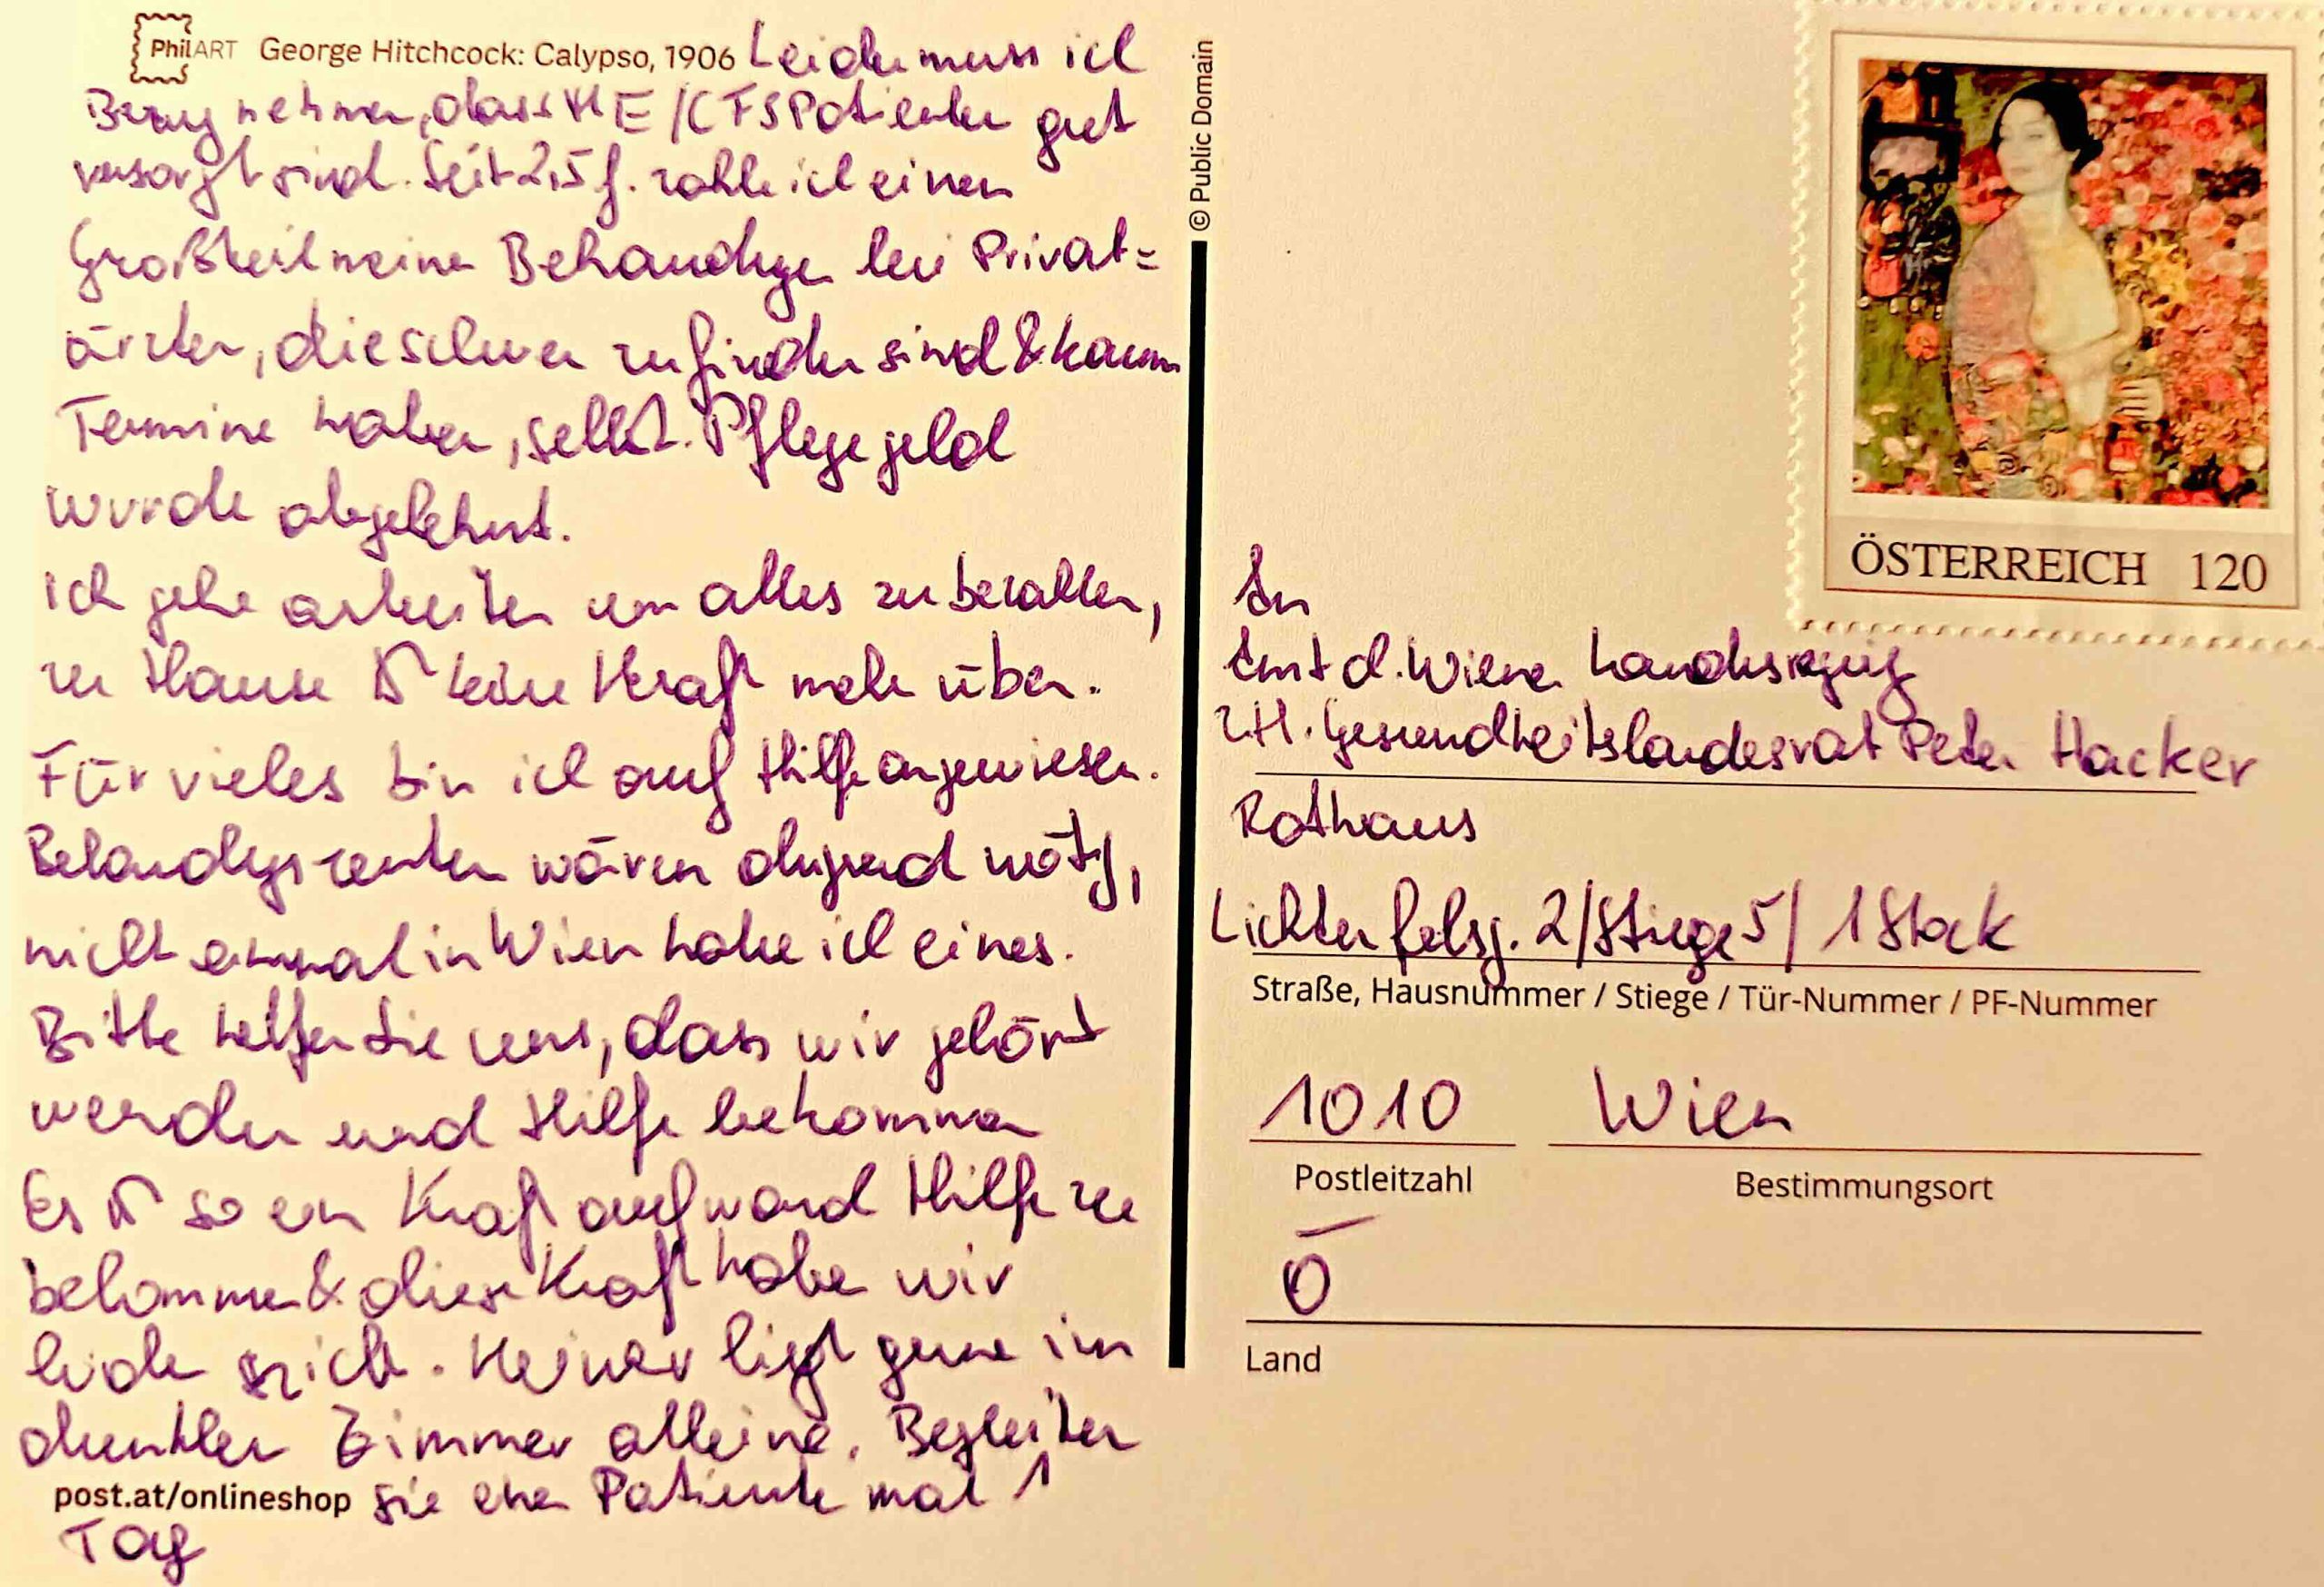 PhilART George Hitchcock: Calypso, 1906 Leider muss ich
Bezug nehmen, dass ME/CFS Patienten gut
versorgt sind. Seit 2,5 J. zahle ich einen
Großteil meiner Behandlungen bei Privat=
ärzten, die schwer zu finden sind & kaum
Termine haben, selbst. Pflegegeld
wurde abgelehnt.
Ich gehe arbeiten um alles zu bezahlen,
zu Hause ist keine Kraft mehr über.
Für vieles bin ich auf Hilfe angewiesen.
Behandlungszentren wären dringend nötig,
nicht einmal in Wien habe ich eines.
Bitte helfen Sie uns, dass wir gehört
werden und Hilfe bekommen
Es ist so ein Kraftaufwand Hilfe zu
bekommen & diese Kraft haben wir
leider nicht. Keiner liegt gerne im
dunklen Zimmer alleine. Begleiten
post.at/onlineshop Sie einen Patienten mal 1
Tag
© Public Domain
ÖSTERREICH 120
An
Amt d. Wiener Landesregierung
z.H. Gesundheitslandesrat Peter Hacker
Rathaus
Lichtenfelsg. 2/Stiege 5/ 1 Stock
Straße, Hausnummer / Stiege / Tür-Nummer / PF-Nummer
1010 Wien
Postleitzahl Bestimmungsort
Ö
Land